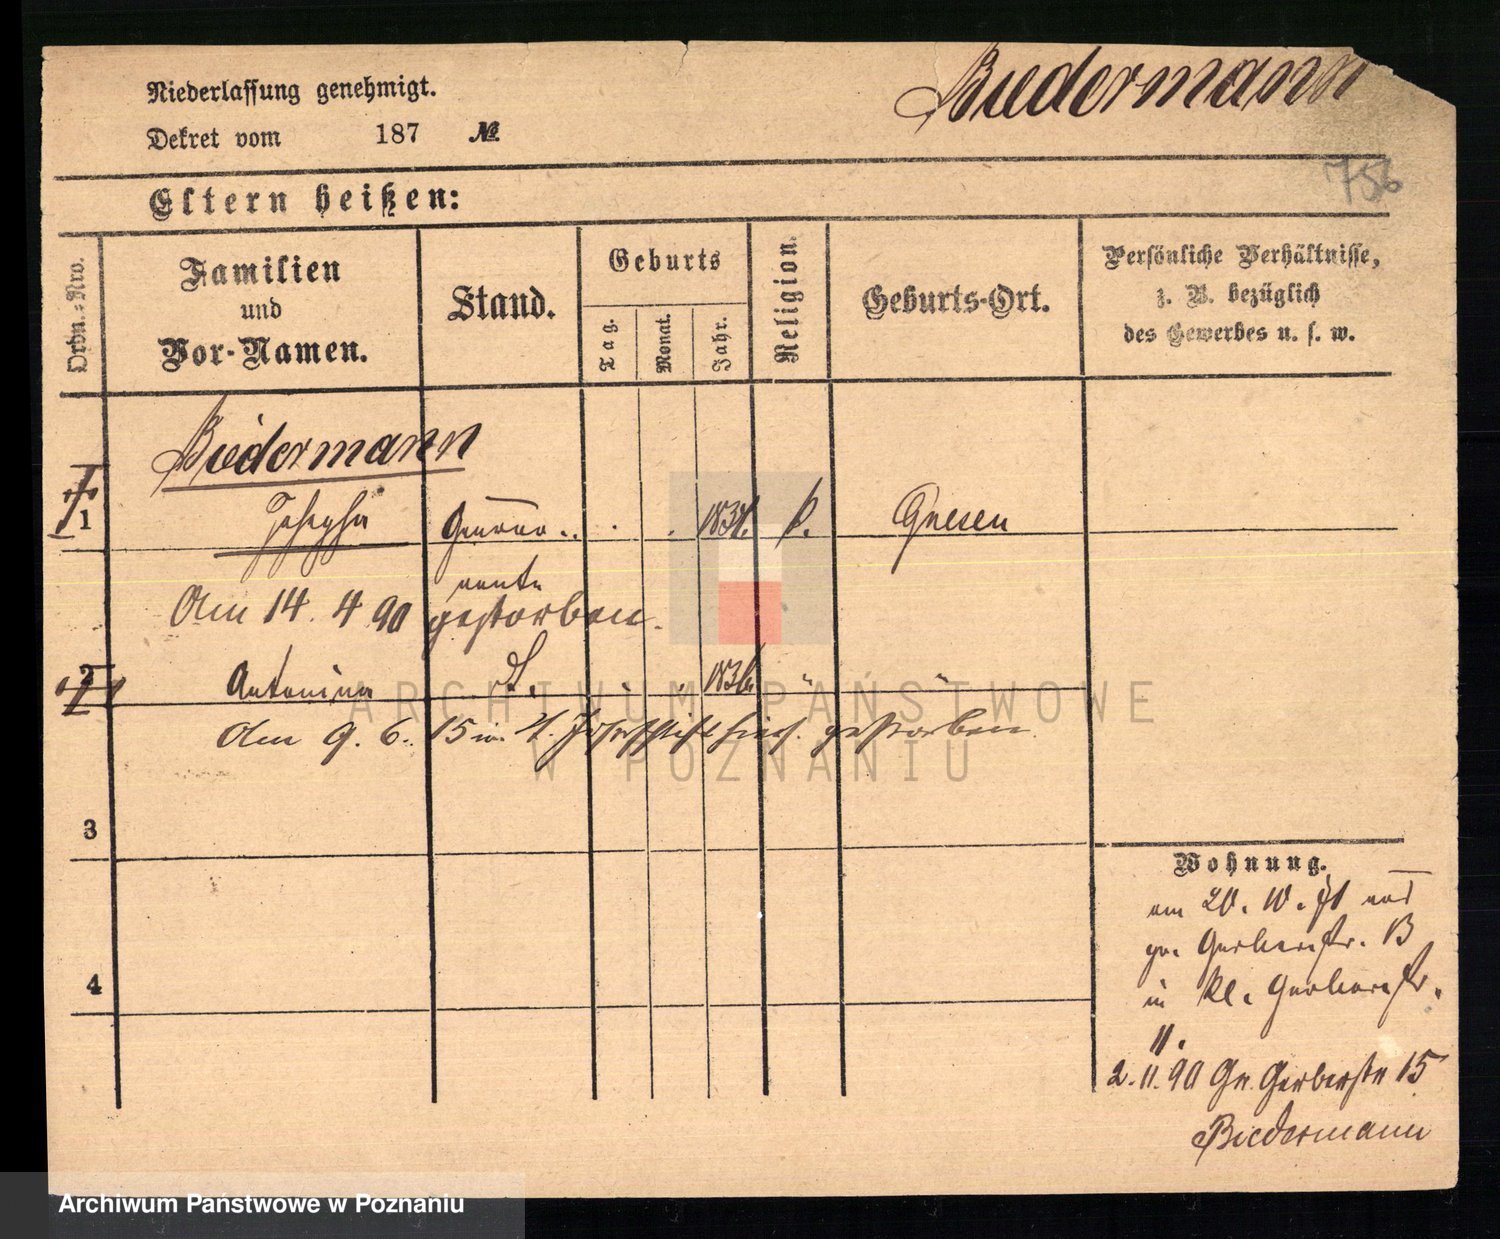 Niederlassung genehmigt.
Biedermann
Dekret vom 187 №
756
Eltern heißen:
Ordn.-Nro.
Familien
und
Vor-Namen.
Stand.
Geburts
Tag.
Monat.
Jahr.
Religion.
Geburts-Ort.
Persönliche Verhältnisse,
z. B. bezüglich
des Gewerbes u. s. w.
Biedermann
1 Josepha 183 Gnesen
Am 14. 4 90 gestorben.
2 Antonina 1836 " "
Am 9. 6. 15 gestorben.
3
4
Wohnung.
am 20. 10. 71 aus
gr. Gerberstr. 13
in kl. Gerberstr.
11.
2. 11. 90 Gr. Gerberstr 15
Biedermann
ARCHIWUM PAŃSTWOWE
W POZNANIU
Archiwum Państwowe w Poznaniu